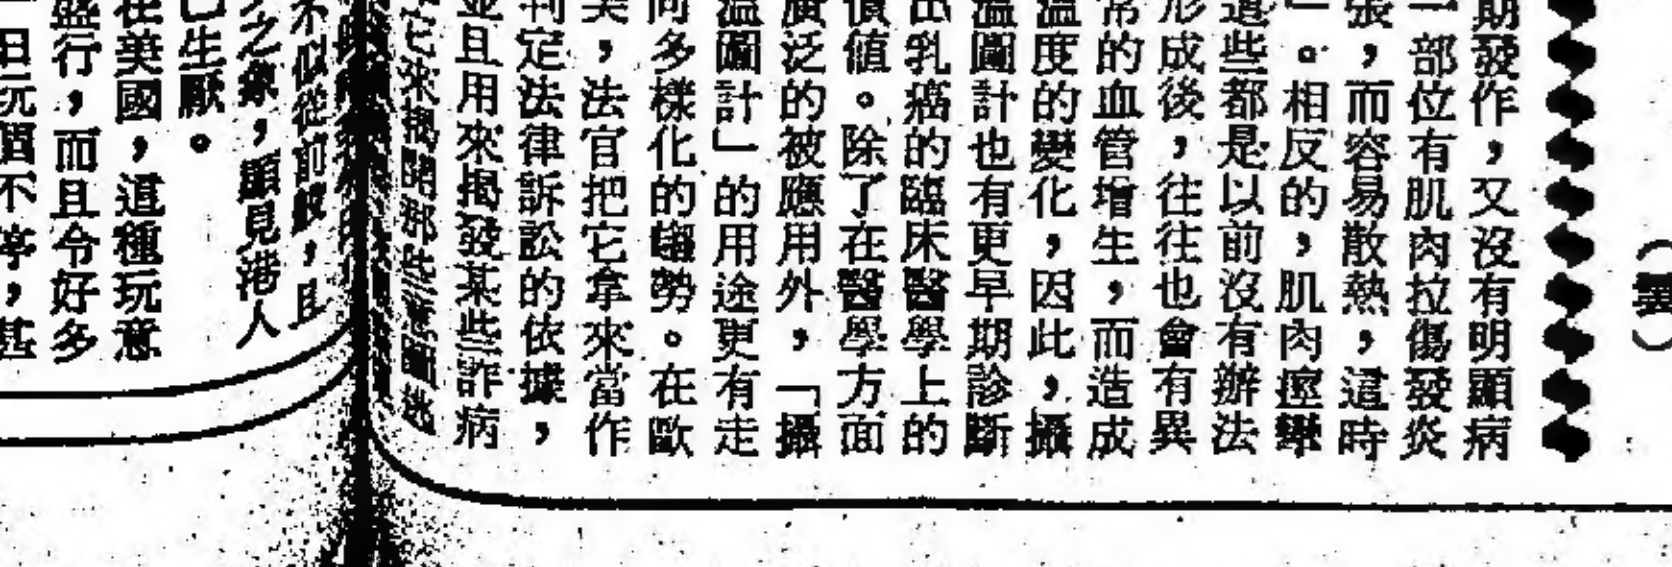 （雲）
期發作，又沒有明顯病
一部位有肌肉拉傷發炎
張，而容易散熱，這時
」。相反的，肌肉痙攣
這些都是以前沒有辦法
形成後，往往也會有異
常的血管增生，而造成
溫度的變化，因此，攝
溫圖計也有更早期診斷
出乳癌的臨床醫學上的
價值。除了在醫學方面
廣泛的被應用外，「攝
溫圖計」的用途更有走
向多樣化的趨勢。在歐
美，法官把它拿來當作
判定法律訴訟的依據，
並且用來揭發某些詐病
它來揭開那些意圖逃
不似從前般，且
之象，顯見港人
已生厭。
在美國，這種玩意
盛行，而且令好多
日玩個不停，甚